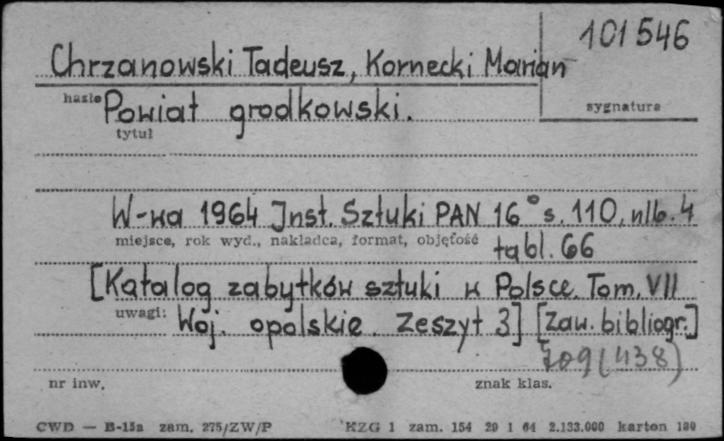 101546
Chrzanowski Tadeusz, Kornecki Marian
hasło
sygnatura
Powiat grodkowski.
tytuł
W-wa 1964 Inst. Sztuki PAN 16° s. 110, nlb. 4
miejsce, rok wyd., nakładca, format, objętość
tabl. 66
[Katalog zabytków sztuki w Polsce. Tom. VII
uwagi:
Woj. opolskie. Zeszyt 3] [Zaw. bibliogr.]
709(438)
nr inw.
znak klas.
CWD — B-15a zam. 275/ZW/P
KZG 1 zam. 154 29 1 64 2.133.000 karton 180